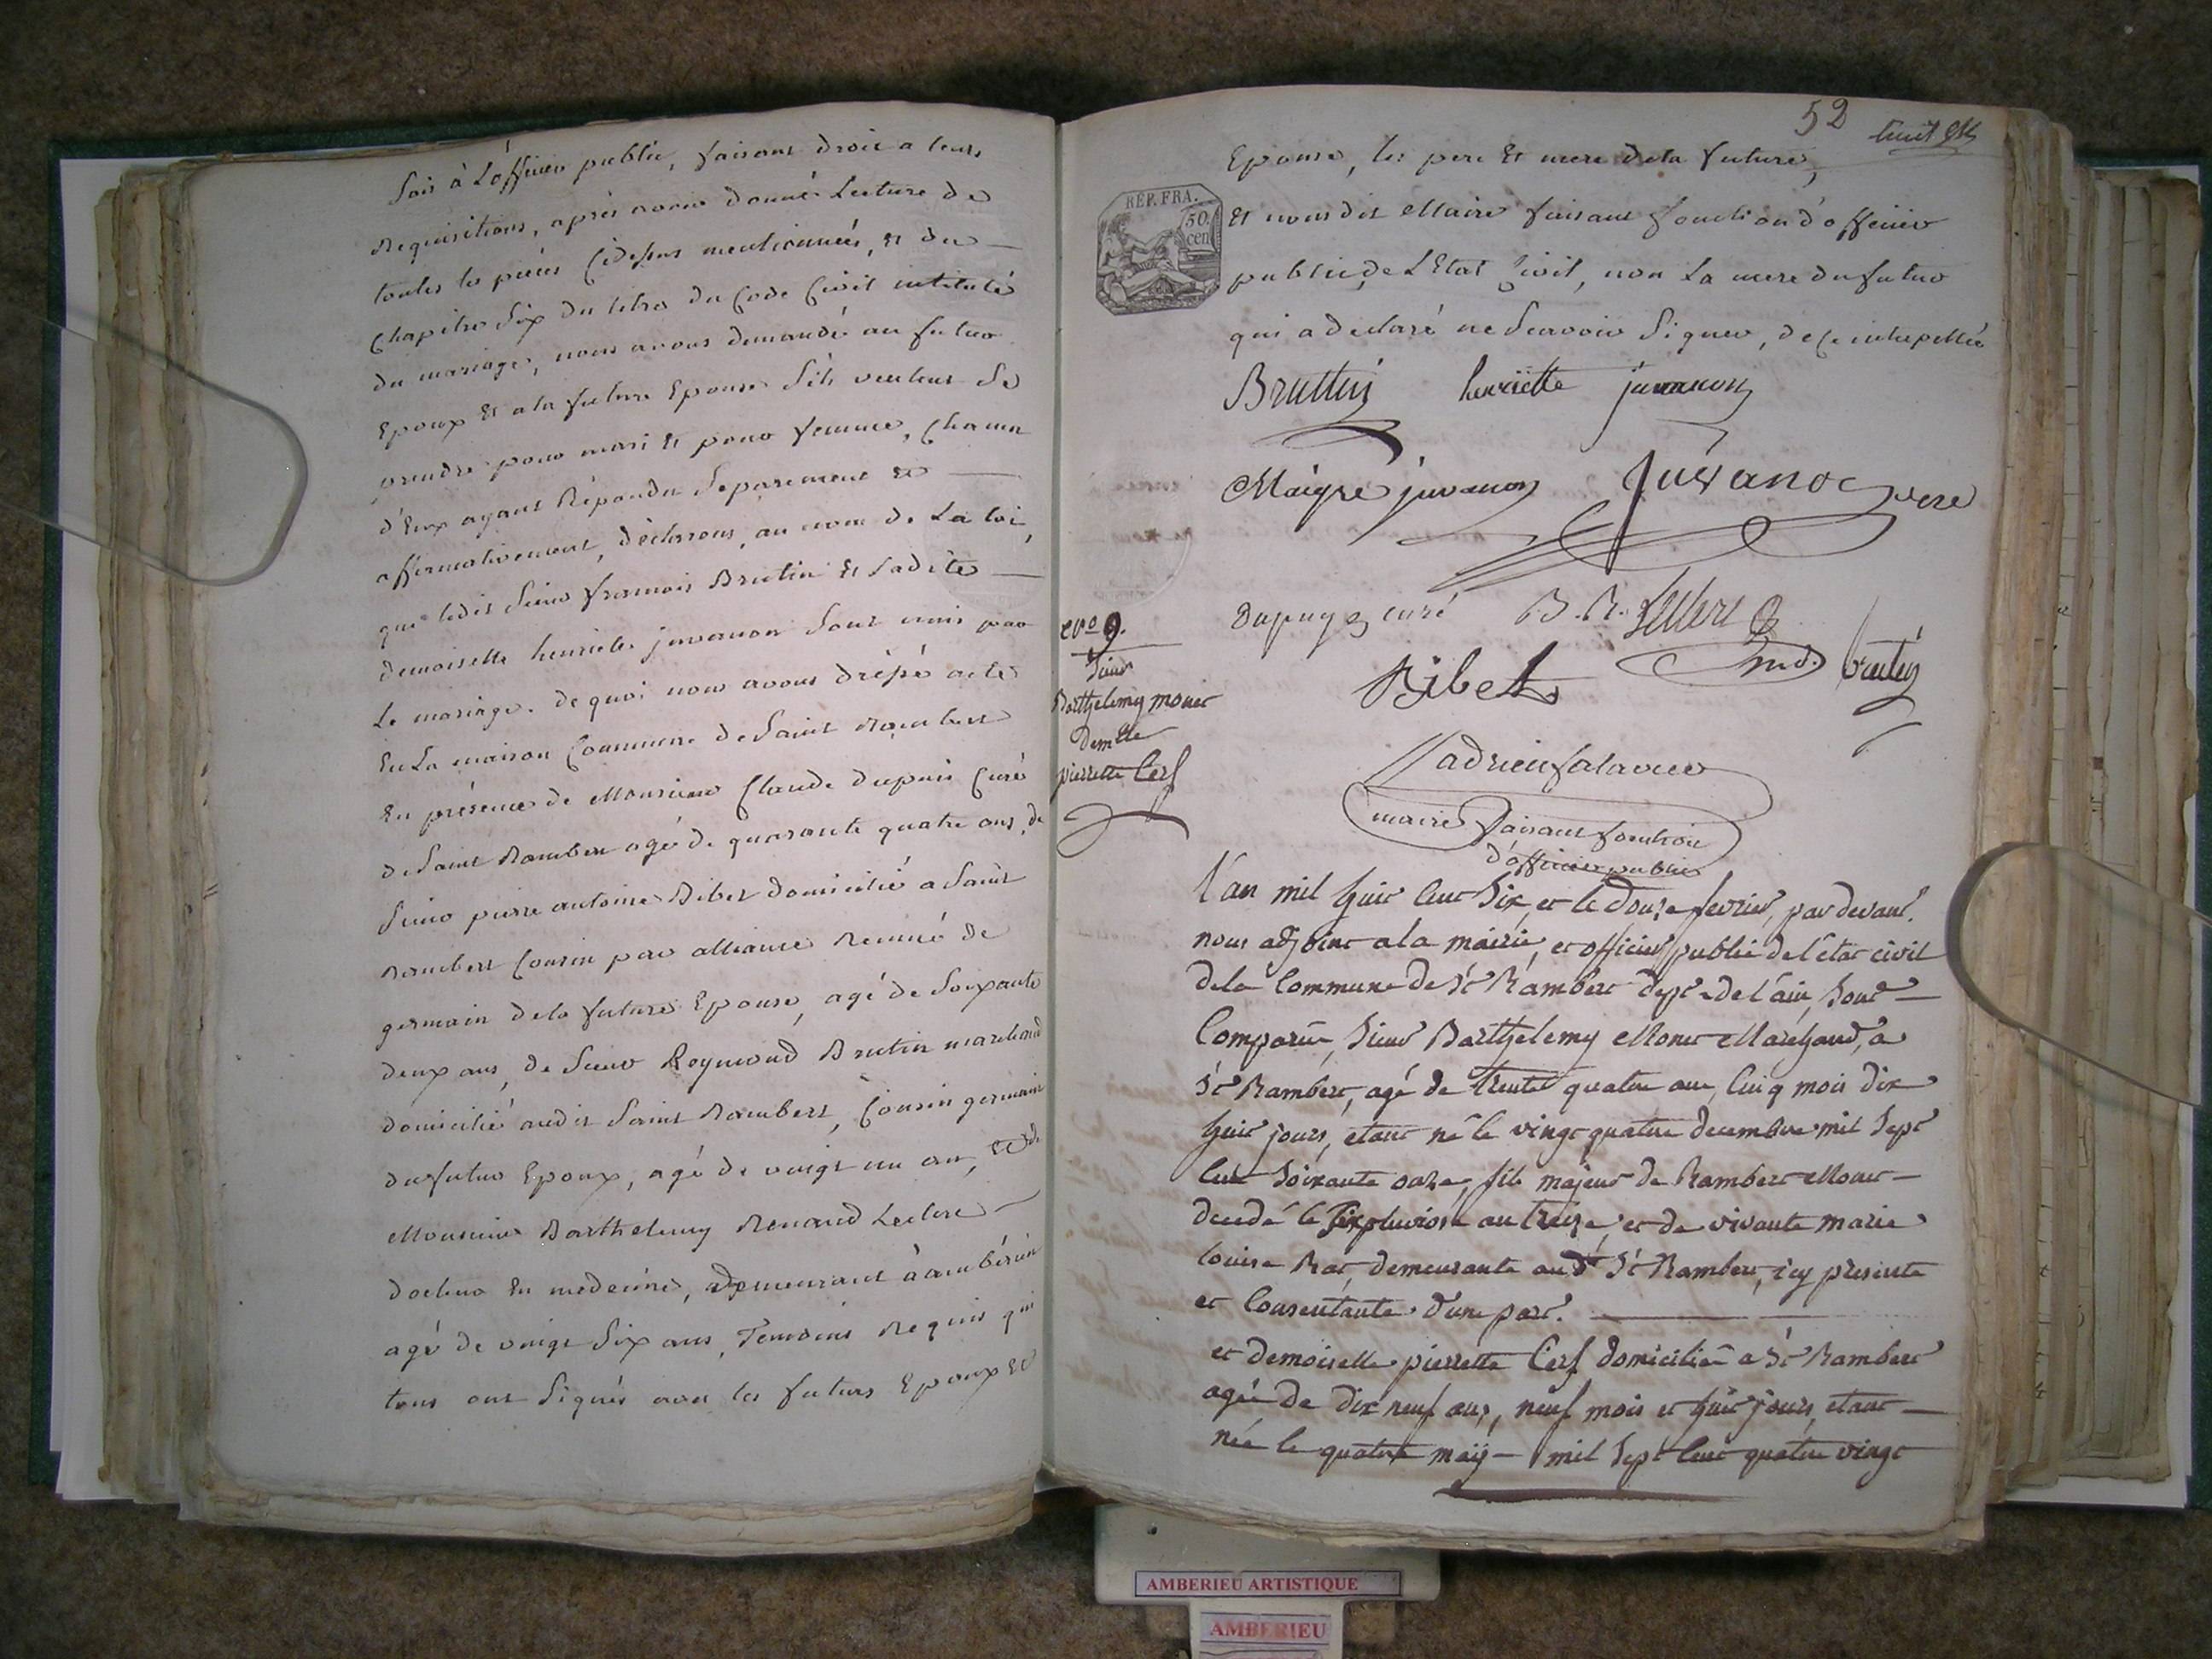 fois à L'officier public, faisant droit a leurs
Requisitions, après avoir donné Lecture de
toutes les pieces Cidessus mentionnées, et du
Chapitre Six du titre du Code Civil intitulé
du mariage, nous avons demandé au futur
Epoux Et a la future Epouse s'ils veulent se
prendre pour mari Et pour femme, Chacun
d'Eux ayant Répondu Separement et
affirmativement, déclarons, au nom de La loi,
que ledit Sieur francois Brutin Et Ladite
demoiselle henriette juvanon sont unis par
Le mariage. de quoi nous avons dressé acte
En La maison Commune de Saint Rambert
En présence de Monsieur Claude dupuis Curé
de Saint Rambert agé de quarante quatre ans, de
Sieur pierre antoine Ribet domicilié a Saint
Rambert Cousin par alliance Remué de
germain dela future Epouse, agé de Soixante
deux ans, de Sieur Reymond Brutin marchand
domicilié audit Saint Rambert, Cousin germain
du futur Epoux, agé de vingt un an, et de
Monsieur Barthelemy Renaud Leclerc
docteur En medecine, demeurant à ambérieu
agé de vingt Six ans, Temoins Requis qui
tous ont Signés avec les futurs Epoux Et
52
Epouse, les pere Et mere dela future,
REP. FRA.
50 cen
Et nous dit Maire faisant fonction d'officier
public de L'Etat Civil, non La mere du futur
qui a declaré ne Scavoir Signer, de Ce interpellée
Bruttin henriette juvanon
Maigre juvanon Juvanon pere
Dupuy curé B. R. Leclerc
Ribet brutin
adrien salavuer
maire faisant fonction
d'officier public
No 9.
Sieur
Barthelemy monet
demlle
pierrette Cerf
L'an mil huit Cent Six, et le Douze fevrier, par devant
nous adjoint ala mairie, et officier public de l'état civil
dela Commune de St Rambert dept de l'ain, Sont
Comparu, Sieur Barthelemy Monet Marchand, a
St Rambert, agé de trente quatre ans, Cinq mois dix
huit jours, etant né le vingt quatre decembre mil Sept
Cent Soixante onze, fils majeur de Rambert Monet
decedé le Six pluviose an treize, et de vivante marie
louise Rat, demeurante audt St Rambert, icy presente
et Consentante d'une part.
et demoiselle pierrette Cerf domiciliée a St Rambert
agée de dix neuf ans, neuf mois et huit jours, etant
née le quatre may mil Sept Cent quatre vingt
AMBERIEU ARTISTIQUE
AMBERIEU